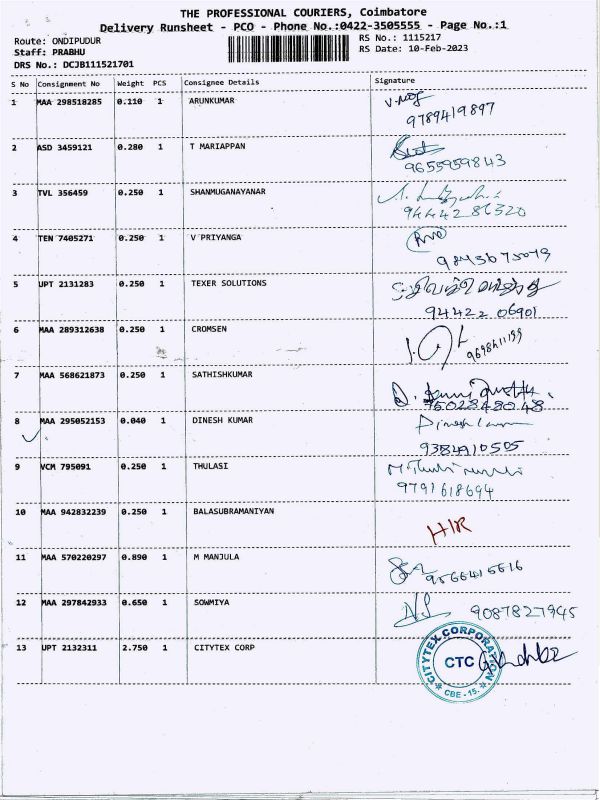 THE PROFESSIONAL COURIERS, Coimbatore
Delivery Runsheet - PCO - Phone No.:0422-3505555 - Page No.:1
Route: ONDIPUDUR
Staff: PRABHU
DRS No.: DCJB111521701
RS No.: 1115217
RS Date: 10-Feb-2023
S No Consignment No Weight PCS Consignee Details Signature
1 MAA 298518285 0.110 1 ARUNKUMAR
9789419897
2 ASD 3459121 0.280 1 T MARIAPPAN
9655959843
3 TVL 356459 0.250 1 SHANMUGANAYANAR
9444286320
4 TEN 7405271 0.250 1 V PRIYANGA
9843675079
5 UPT 2131283 0.250 1 TEXER SOLUTIONS
94422 06901
6 MAA 289312638 0.250 1 CROMSEN
9698411199
7 MAA 568621873 0.250 1 SATHISHKUMAR
8 MAA 295052153 0.040 1 DINESH KUMAR
9384910505
9 VCM 795091 0.250 1 THULASI
9791618694
10 MAA 942832239 0.250 1 BALASUBRAMANIYAN
H/R
11 MAA 570220297 0.890 1 M MANJULA
9566415516
12 MAA 297842933 0.650 1 SOWMIYA
9087827945
13 UPT 2132311 2.750 1 CITYTEX CORP
CITYTEX CORPORATION
CTC
CBE - 15.